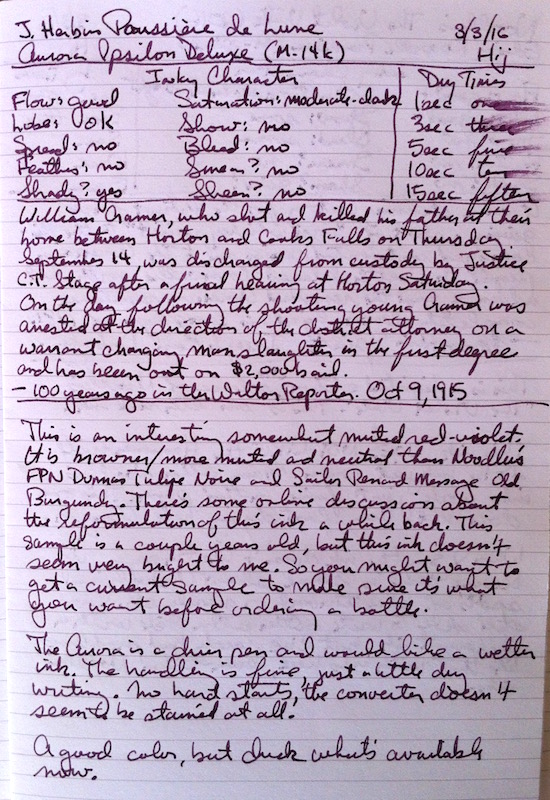 J. Herbin Poussière de Lune 3/3/16
Aurora Ipsilon Deluxe (M-14k) Hij
Inky Character Dry Times
Flow: good Saturation: moderate-dark 1sec one
Lube: ok Show: no 3sec three
Spread: no Bleed: no 5sec five
Feather: no Smear? no 10sec ten
Shady? yes Sheen? no 15sec fifteen
William Cramer, who shot and killed his father at their
home between Horton and Cooks Falls on Thursday
September 14 was discharged from custody by Justice
C.T. Stage after a final hearing at Horton Saturday.
On the day following the shooting young Cramer was
arrested at the direction of the district attorney on a
warrant charging manslaughter in the first degree
and has been out on $2,000 bail.
- 100 years ago in the Walton Reporter. Oct 9, 1915
This is an interesting somewhat muted red-violet.
It is browner/more muted and neutral than Noodler's
FPN Dumas Tulipe Noire and Sailor Renard Message Old
Burgundy. There's some online discussion about
the reformulation of this ink a while back. This
sample is a couple years old, but this ink doesn't
seem very bright to me. So you might want to
get a current sample to make sure it's what
you want before ordering a bottle.
The Aurora is a drier pen and would like a wetter
ink. The handling is fine, just a little dry
writing. No hard starts, the converter doesn't
seem to be stained at all.
A good color, but check what's available
now.